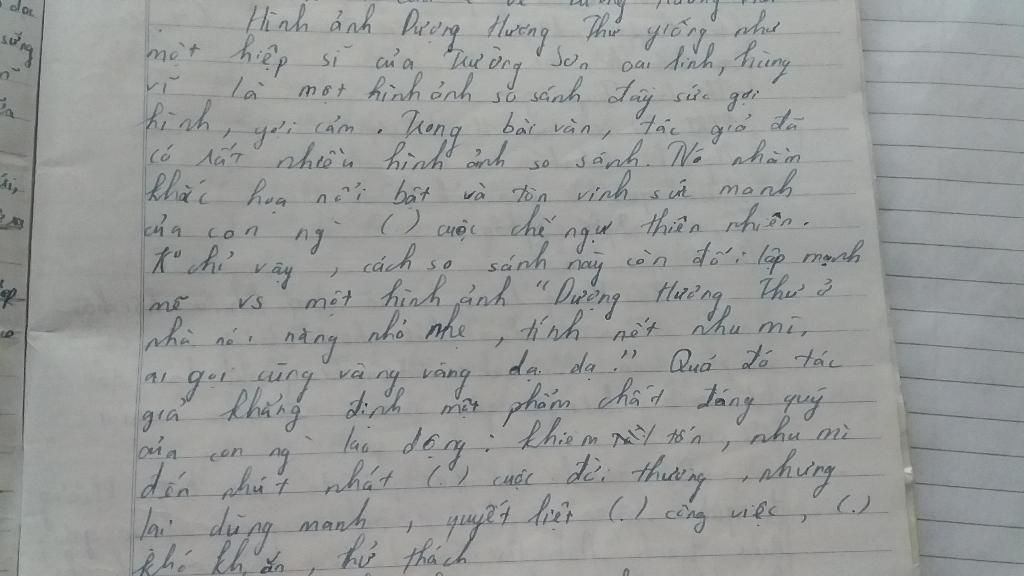 Hình ảnh Dượng Hương Thư giống như
một hiệp sĩ của Trường Sơn oai linh, hùng
vĩ là một hình ảnh so sánh đầy sức gợi
hình, gợi cảm. Trong bài văn, tác giả đã
có rất nhiều hình ảnh so sánh. Nó nhằm
khắc họa nổi bật và tôn vinh sức mạnh
của con ng ( ) cuộc chế ngự thiên nhiên.
K° chỉ vậy, cách so sánh này còn đối lập mạnh
mẽ vs một hình ảnh "Dượng Hương Thư ở
nhà nói năng nhỏ nhẹ, tính nết nhu mì,
ai gọi cũng vâng vâng dạ dạ." Quá đó tác
giả khẳng định một phẩm chất đáng quý
của con ng lao động: khiêm tốn, nhu mì
đến nhút nhát (.) cuộc đời thường, nhưng
lại dũng mạnh, quyết liệt (.) công việc, (.)
khó khăn, thử thách